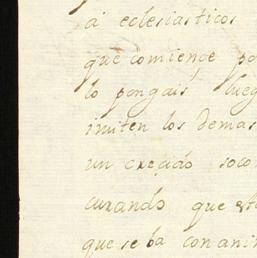 a eclesiasticos
que comience po
lo pongais, lueg
inviten los demas
un crecido soco
curando que esto
que se ha con ani